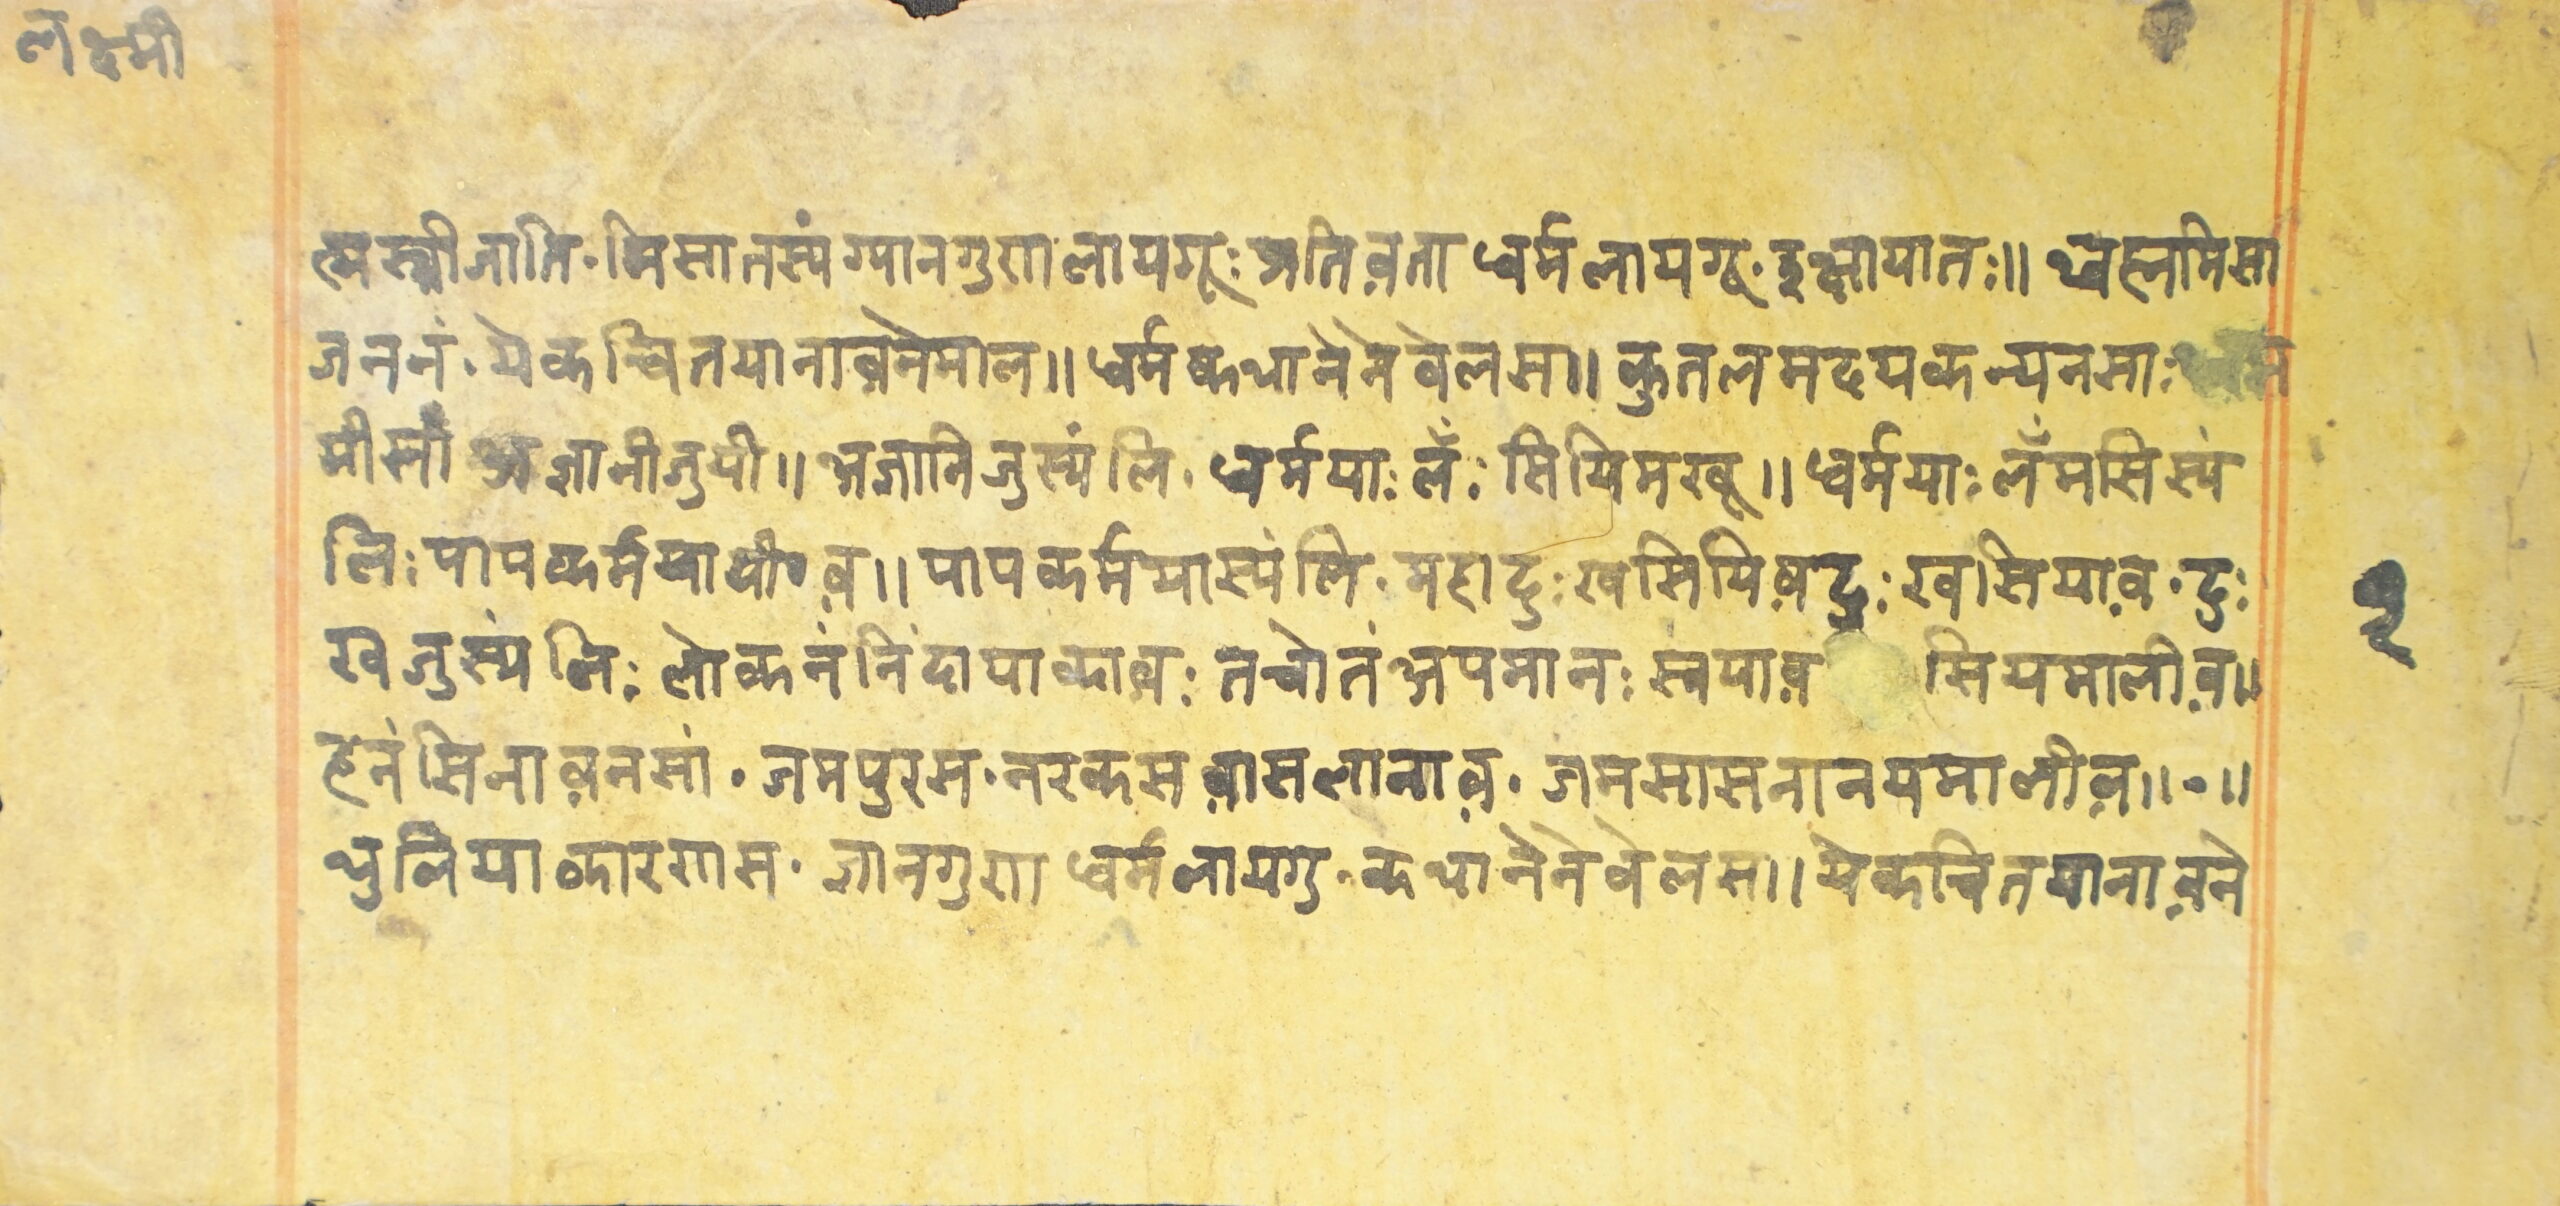 लक्ष्मी
त्मस्त्रीजाति·मिसातस्यं ग्यानगुण लायगू: प्रतिव़ता ध्वर्मलायगू· दुर्ल्लायात:॥ थ्वह्लमिसा
जननं·येकन्चितयानाव़नेमाल॥ ध्वर्मकथानेनेवेलस॥ कुतलमदयकन्यनसा:
मीसाँ अज्ञानीजुयी॥ अज्ञानिजुस्यंलि· ध्वर्मया:लँ: सियिमखू॥ ध्वर्मया:लँमसिस्यं
लि: पापकर्मयायीव़॥ पापकर्मयास्यंलि·महादु:खसियिव़दु:खसियाव़·दु:
खजुस्यंलि: लोकनंनिंदायाकाव़: तचोतंअपमान: स्वयाव़ सियमालीव़॥
हनंसिनाव़नसां·जमपुरस·नरकसव़ासलानाव़·जमसासनानयमालीव़॥·॥
थुलियाकारणस·ज्ञानगुण ध्वर्मलायगु·कथानेनेवेलस॥ येकचितयानाव़ने
२